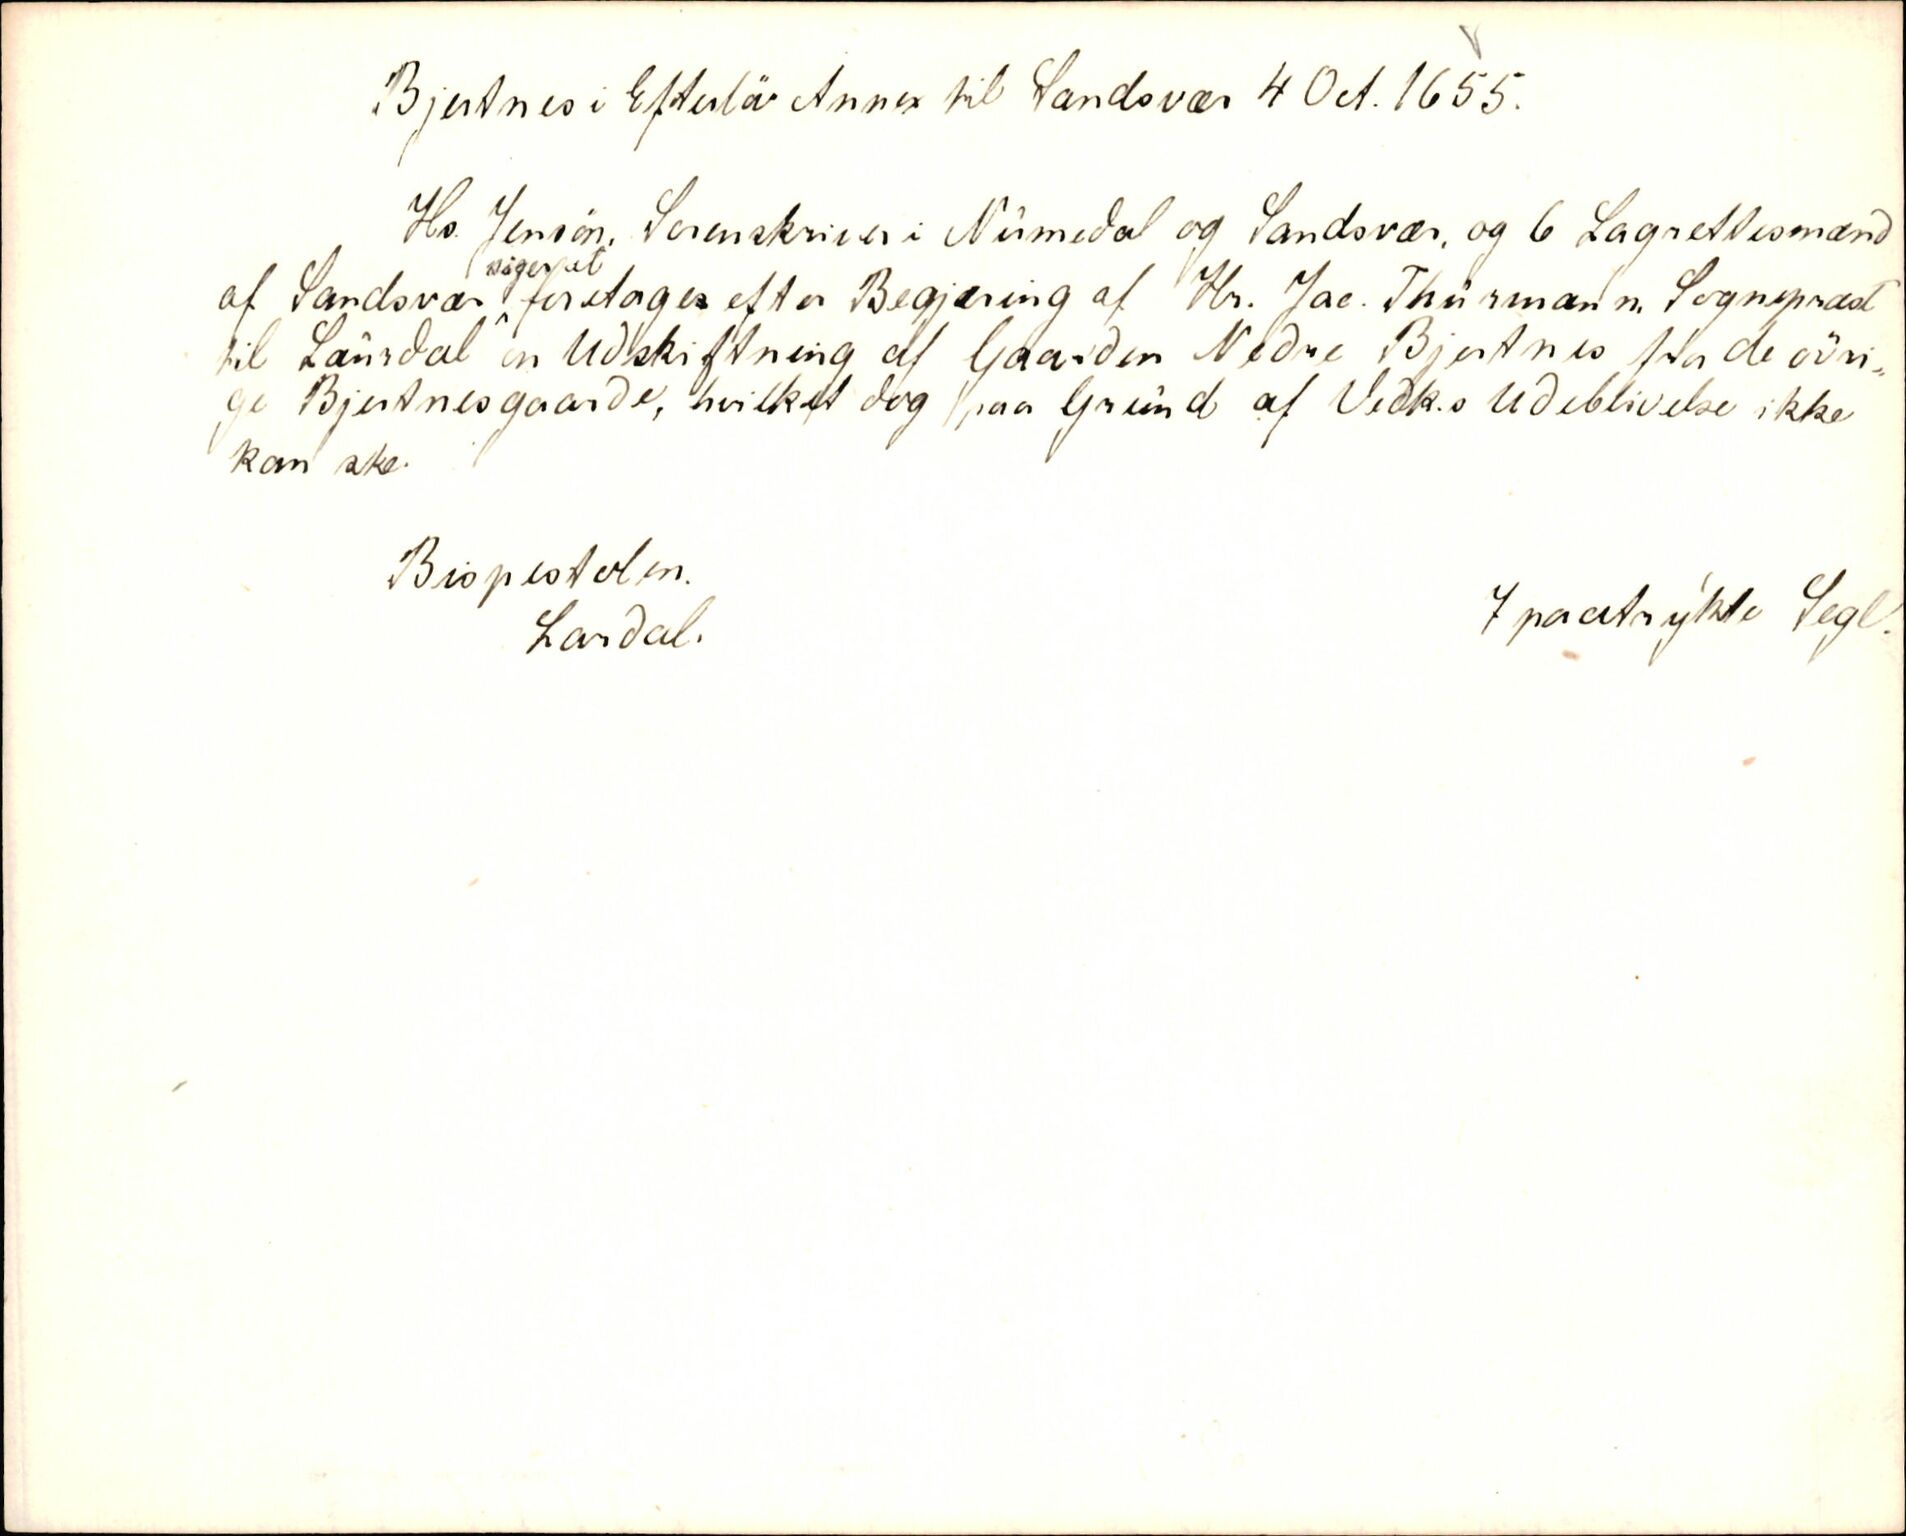 Bjertnes i Efterlöv Annex til Sandsvær 4 Oct. 1655.
Hs. Jensön, Sorenskriver i Numedal og Sandsvær, og 6 Lagrettesmænd
af Sandsvær siger at foretages efter Begjæring af Hr. Jac. Thurmann, Sognepræst
til Laurdal en Udskiftning af Gaarden Nedre Bjertnes fra de övri„
ge Bjertnesgaarde, hvilket dog paa Grund af Vedk.s Udeblivelse ikke
kan ske.
Bispestolen.
Lardal.
7 paatrykte Segl.